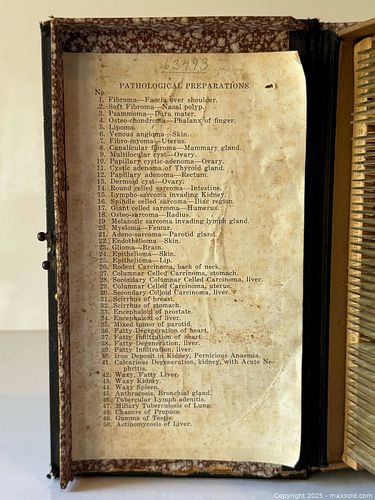 63493
PATHOLOGICAL PREPARATIONS.
No.
1. Fibroma—Fascia over shoulder.
2. Soft Fibroma—Nasal polyp.
3. Psammoma—Dura mater.
4. Osteo-chondroma—Phalanx of finger.
5. Lipoma.
6. Venous angioma—Skin.
7. Fibro-myoma—Uterus.
8. Canalicular fibroma—Mammary gland.
9. Multilocular cyst—Ovary.
10. Papillary cystic-adenoma—Ovary.
11. Cystic adenoma of Thyroid gland.
12. Papillary adenoma—Rectum.
13. Dermoid cyst—Ovary.
14. Round celled sarcoma—Intestine.
15. Lympho-sarcoma invading Kidney.
16. Spindle celled sarcoma—Iliac region.
17. Giant celled sarcoma—Humerus.
18. Osteo-sarcoma—Radius.
19. Melanotic sarcoma invading lymph gland.
20. Myeloma—Femur.
21. Adeno-sarcoma—Parotid gland.
22. Endothelioma—Skin.
23. Glioma—Brain.
24. Epithelioma—Skin.
25. Epithelioma—Lip.
26. Rodent Carcinoma, back of neck.
27. Columnar Celled Carcinoma, stomach.
28. Secondary Columnar Celled Carcinoma, liver.
29. Columnar Celled Carcinoma, uterus.
30. Secondary Colloid Carcinoma, liver.
31. Scirrhus of breast.
32. Scirrhus of stomach.
33. Encephaloid of prostate.
34. Encephaloid of liver.
35. Mixed tumor of parotid.
36. Fatty Degeneration of heart.
37. Fatty Infiltration of heart.
38. Fatty Degeneration, liver.
39. Fatty Infiltration, liver.
40. Iron Deposit in Kidney, Pernicious Anaemia.
41. Calcareous Degeneration, kidney, with Acute Ne-
phritis.
42. Waxy, Fatty Liver.
43. Waxy Kidney.
44. Waxy Spleen.
45. Anthracosis, Bronchial gland.
46. Tubercular Lymph adenitis.
47. Miliary Tuberculosis of Lung.
48. Chancre of Prepuce.
49. Gumma of Testis.
50. Actinomycosis of Liver.
Copyright © 2025 - maxsold.com